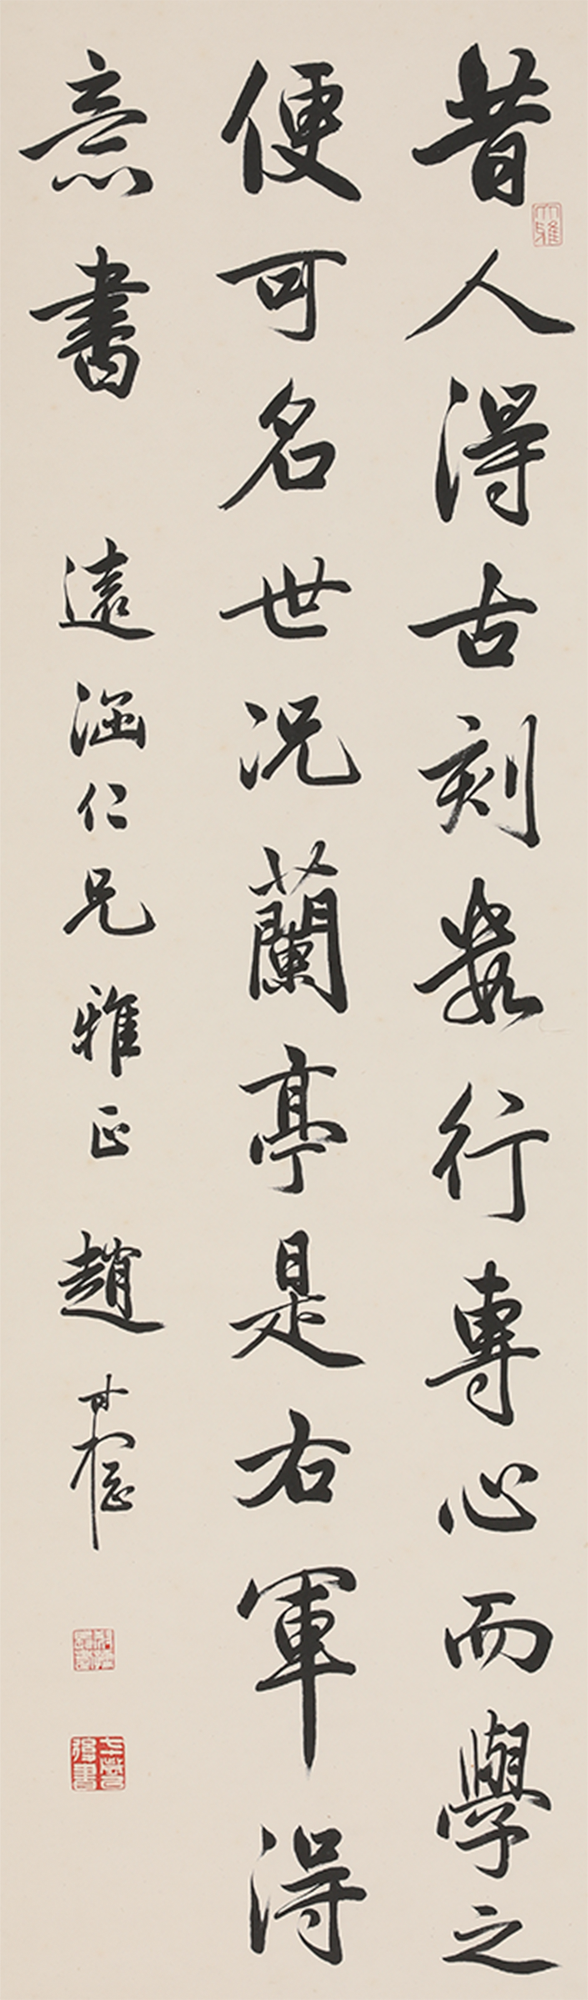 昔人得古刻數行專心而學之
便可名世況蘭亭是右軍得
意書 遠涵仁兄雅正 趙